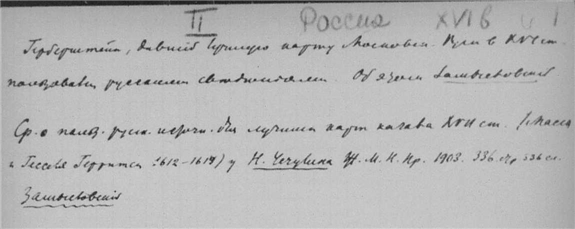 II Россия XVI в 1
Герберштейн, давший лучшую карту Московии. Руси в XVI ст.
пользовался русскими Об этом Замысловский
Ср. о польз. русс. источн. для лучших карт начала XVII ст. (Масса
и Гесселя Герритса 1612–1614) у Н. Чечулина Ж. М. Н. Пр. 1903. 336.
Замысловский